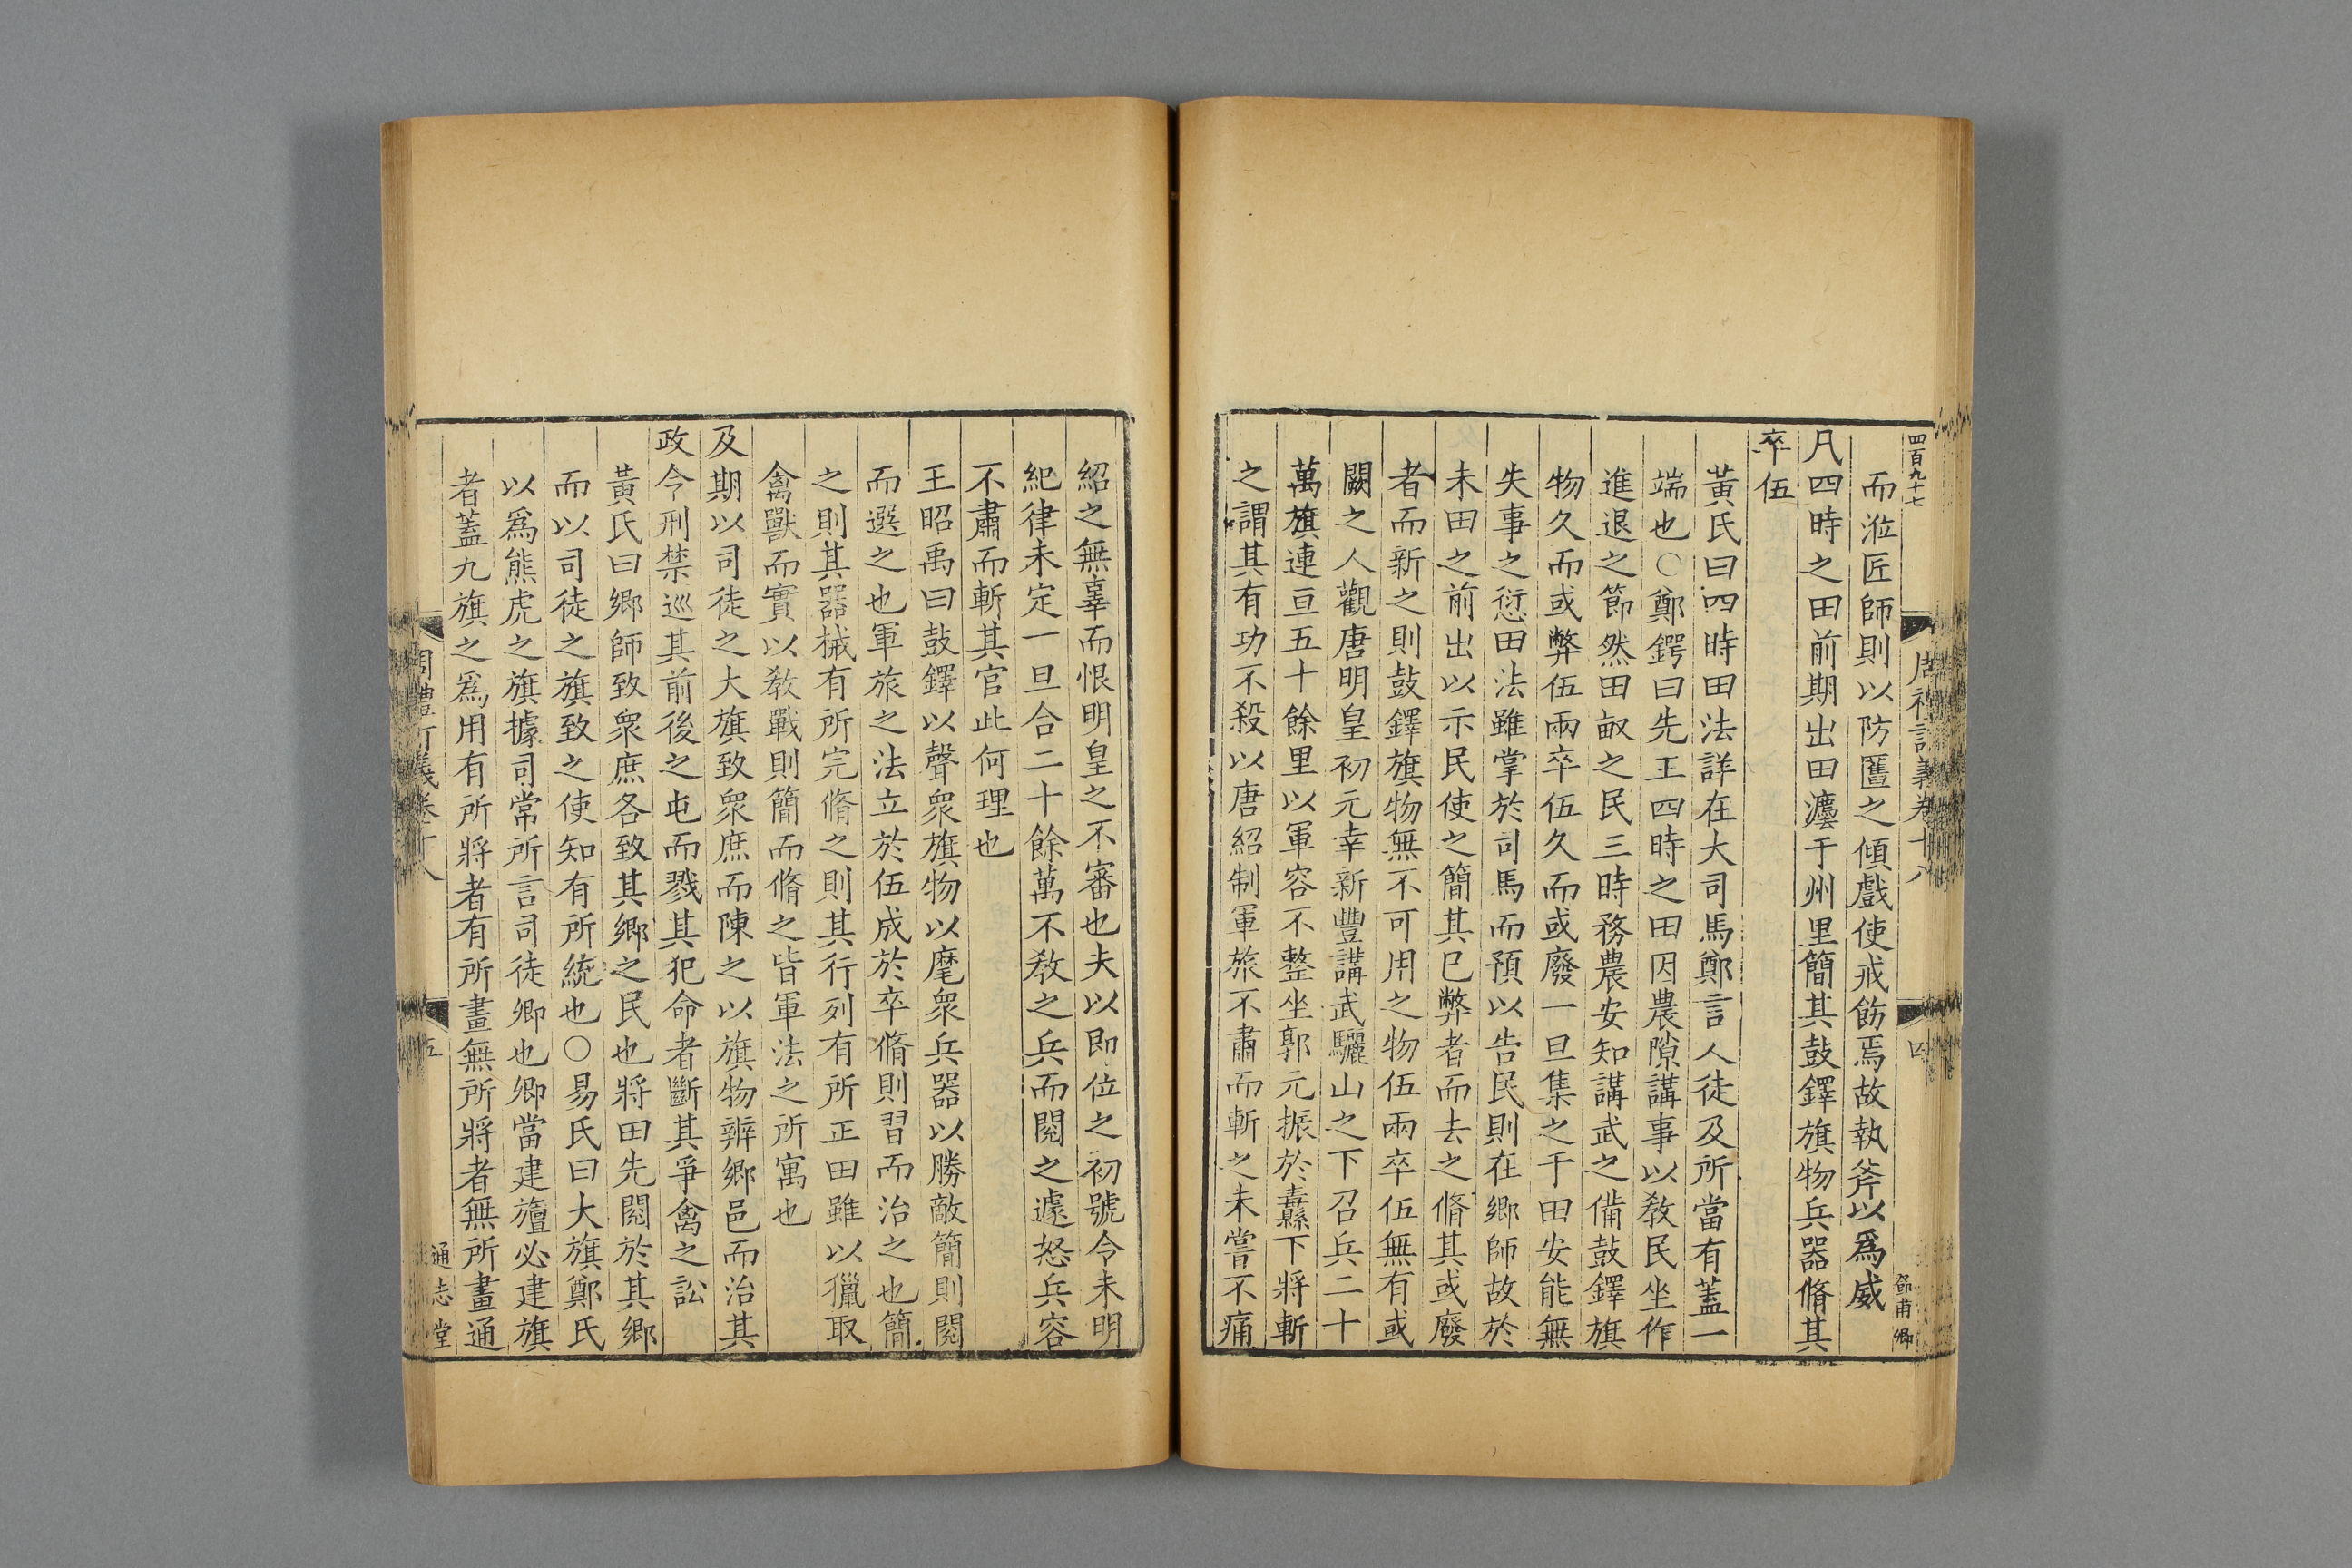 四百九十七
周禮訂義卷十八
四
節甫
鄉
而涖匠師則以防匶之傾戲使戒飭焉故執斧以爲威
凡四時之田前期出田灋于州里簡其鼓鐸旗物兵器脩其
卒伍
黃氏曰四時田法詳在大司馬鄭言人徒及所當有蓋一
端也○鄭鍔曰先王四時之田因農隙講事以敎民坐作
進退之節然田畝之民三時務農安知講武之備鼓鐸旗
物久而或弊伍兩卒伍久而或廢一旦集之于田安能無
失事之愆田法雖掌於司馬而預以告民則在鄉師故於
未田之前出以示民使之簡其已弊者而去之脩其或廢
者而新之則鼓鐸旗物無不可用之物伍兩卒伍無有或
闕之人觀唐明皇初元幸新豐講武驪山之下召兵二十
萬旗連亘五十餘里以軍容不整坐郭元振於纛下將斬
之謂其有功不殺以唐紹制軍旅不肅而斬之未嘗不痛
紹之無辜而恨明皇之不審也夫以即位之初號令未明
紀律未定一旦合二十餘萬不敎之兵而閱之遽怒兵容
不肅而斬其官此何理也
王昭禹曰鼓鐸以聲衆旗物以麾衆兵器以勝敵簡則閱
而選之也軍旅之法立於伍成於卒脩則習而治之也簡
之則其器械有所完脩之則其行列有所正田雖以獵取
禽獸而實以敎戰則簡而脩之皆軍法之所寓也
及期以司徒之大旗致衆庶而陳之以旗物辨鄉邑而治其
政令刑禁巡其前後之屯而戮其犯命者斷其爭禽之訟
黃氏曰鄉師致衆庶各致其鄉之民也將田先閱於其鄉
而以司徒之旗致之使知有所統也○易氏曰大旗鄭氏
以爲熊虎之旗據司常所言司徒卿也卿當建旜必建旗
者蓋九旗之爲用有所將者有所畫無所將者無所畫通
周禮訂義卷十八
五
通志堂